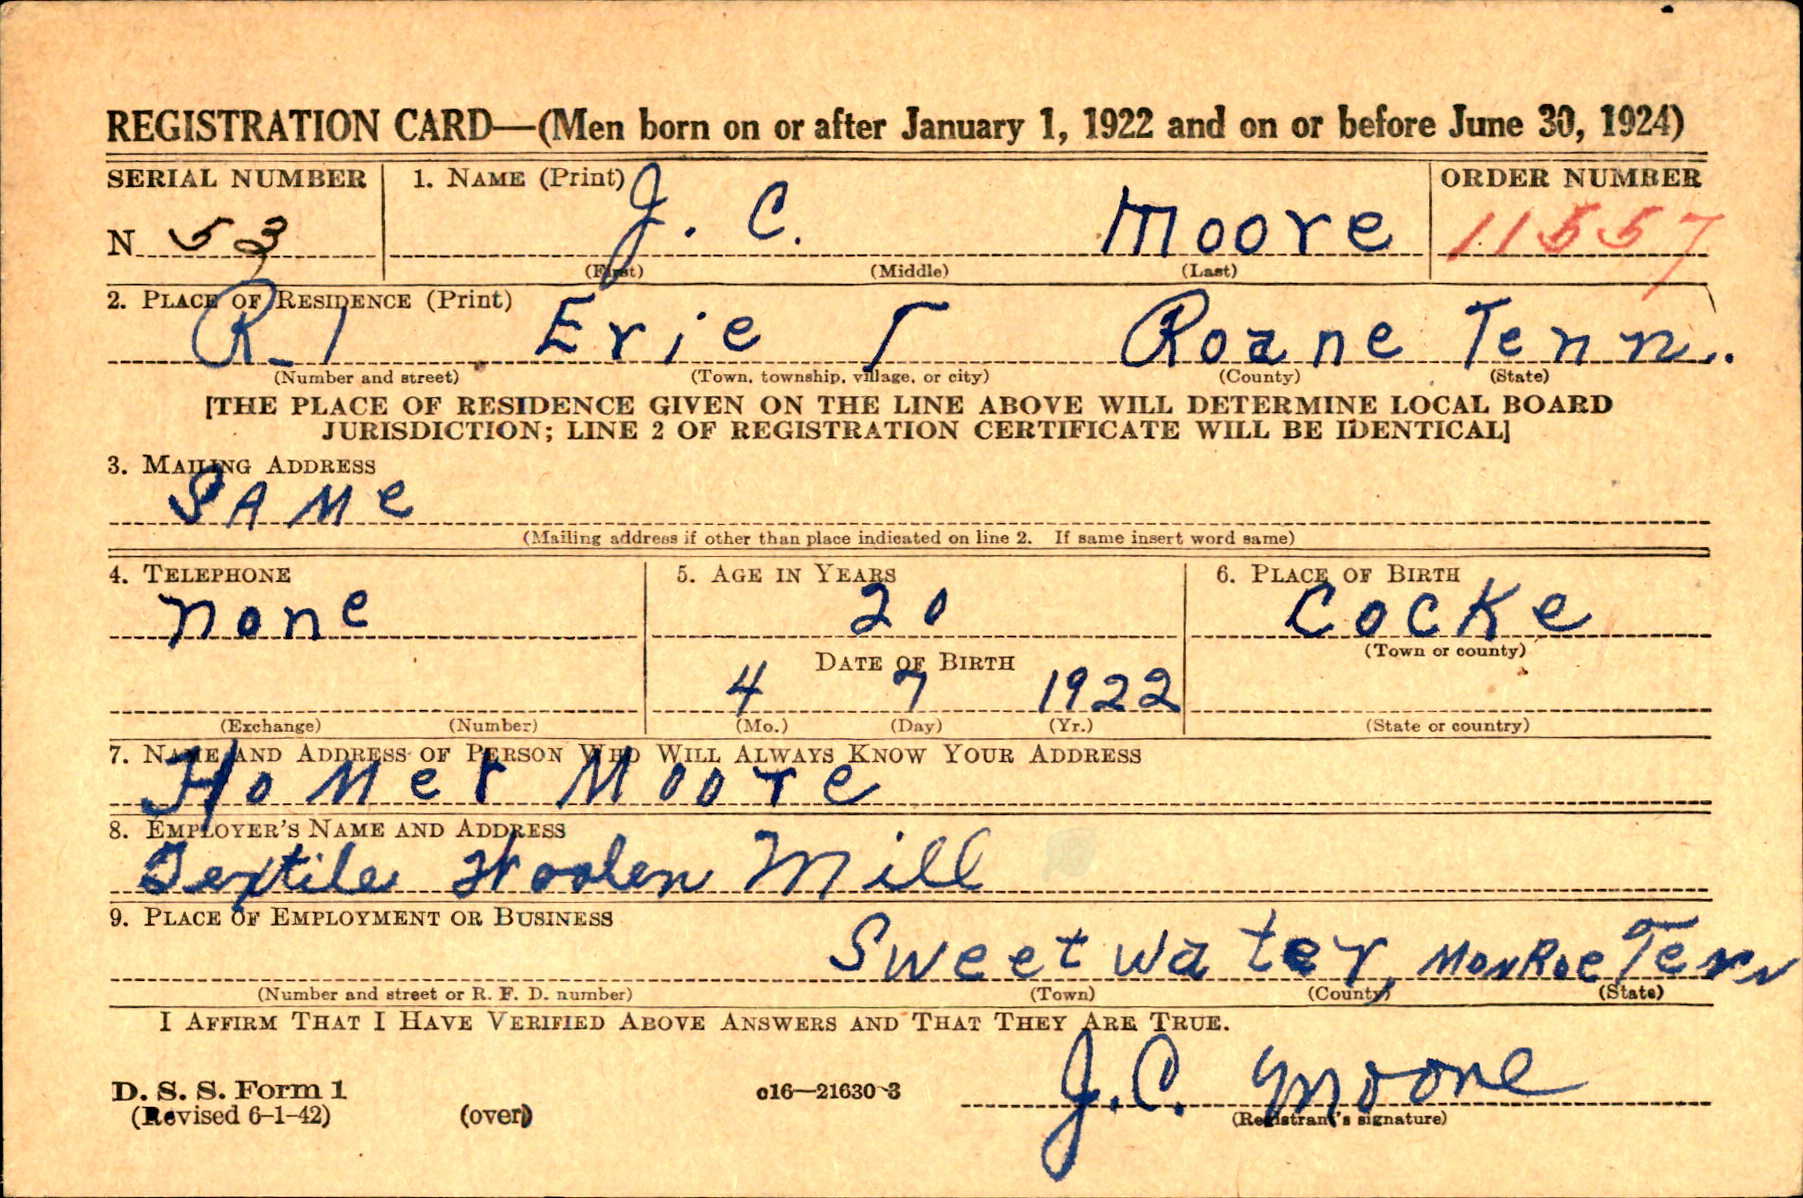 REGISTRATION CARD—(Men born on or after January 1, 1922 and on or before June 30, 1924)
SERIAL NUMBER 1. NAME (Print) ORDER NUMBER
N 53 J. C. Moore 11557
(First) (Middle) (Last)
2. PLACE OF RESIDENCE (Print)
R-1 Erie Roane Tenn.
(Number and street) (Town, township, village, or city) (County) (State)
[THE PLACE OF RESIDENCE GIVEN ON THE LINE ABOVE WILL DETERMINE LOCAL BOARD
JURISDICTION; LINE 2 OF REGISTRATION CERTIFICATE WILL BE IDENTICAL]
3. MAILING ADDRESS
SAMe
(Mailing address if other than place indicated on line 2. If same insert word same)
4. TELEPHONE 5. AGE IN YEARS 6. PLACE OF BIRTH
none 20 Cocke
(Town or county)
DATE OF BIRTH
4 7 1922
(Exchange) (Number) (Mo.) (Day) (Yr.) (State or country)
7. NAME AND ADDRESS OF PERSON WHO WILL ALWAYS KNOW YOUR ADDRESS
HoMer Moore
8. EMPLOYER'S NAME AND ADDRESS
Textile Woolen Mill
9. PLACE OF EMPLOYMENT OR BUSINESS
Sweetwater, MonRoe Tenn
(Number and street or R. F. D. number) (Town) (County) (State)
I AFFIRM THAT I HAVE VERIFIED ABOVE ANSWERS AND THAT THEY ARE TRUE.
J. C. Moore
D. S. S. Form 1 c16—21630-3
(Revised 6-1-42) (over) (Registrant's signature)